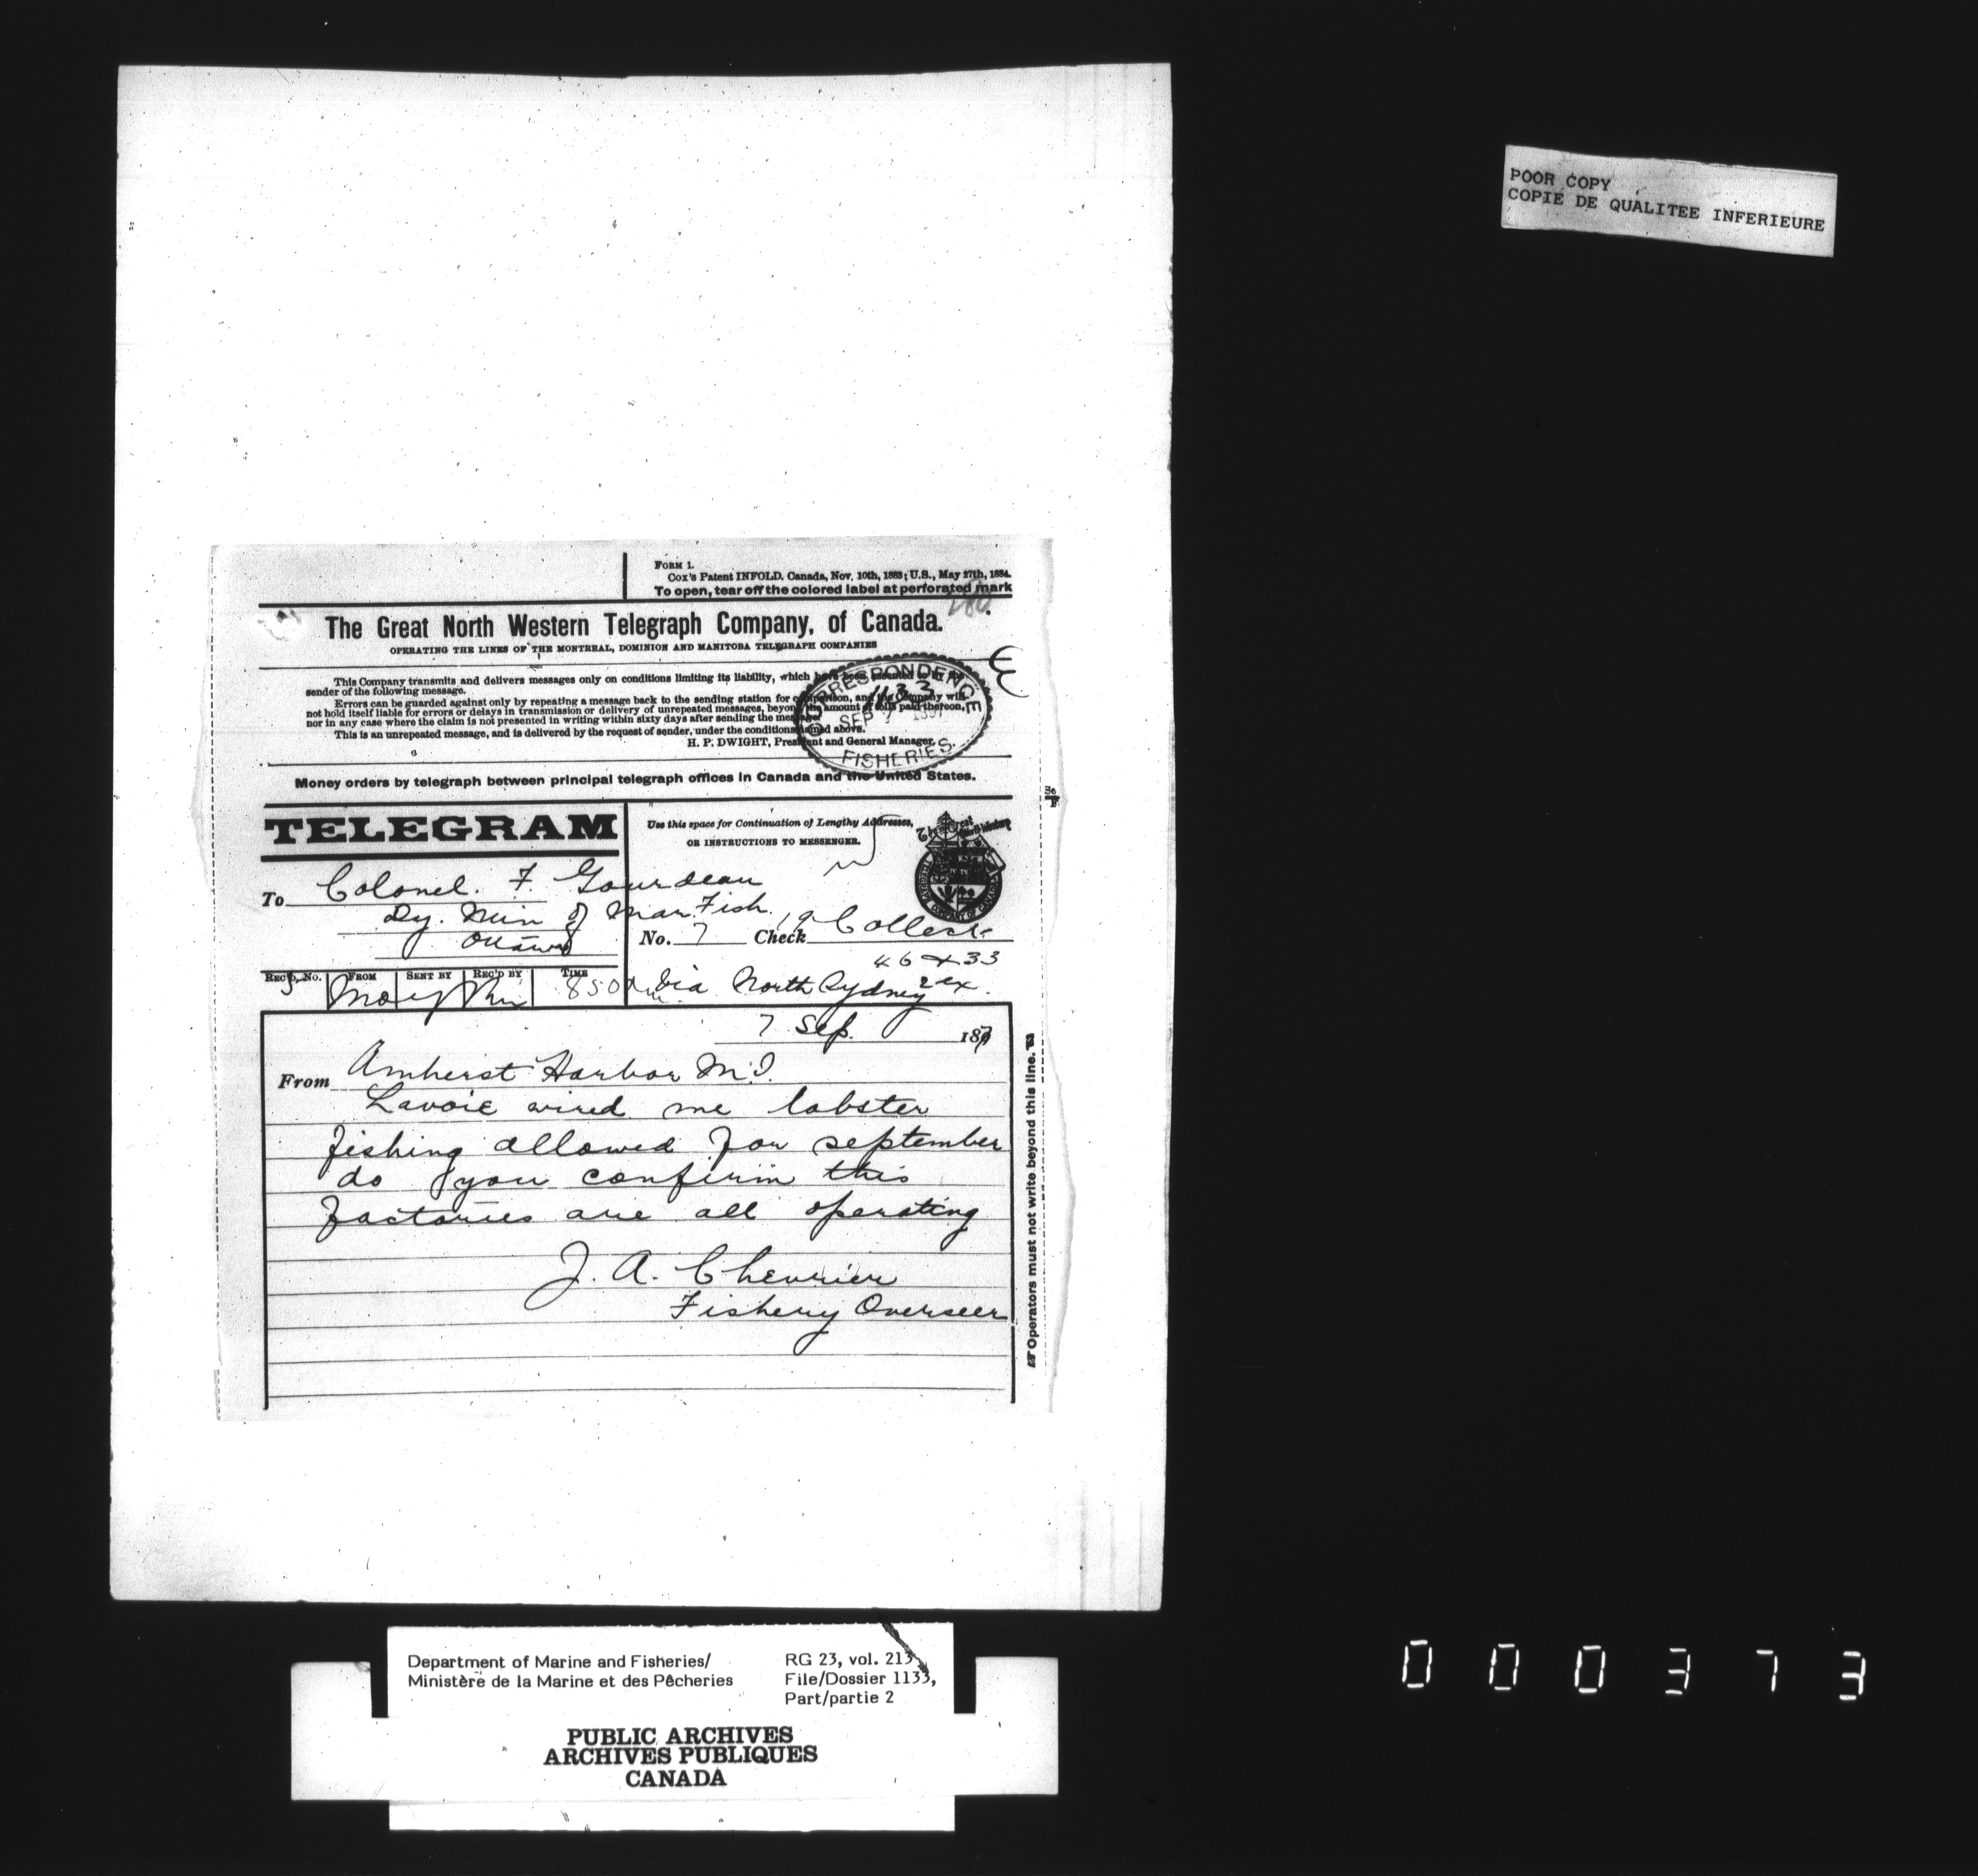 POOR COPY
COPIE DE QUALITEE INFERIEURE
FORM 1.
Cox's Patent INFOLD. Canada, Nov. 10th, 1883; U.S., May 27th, 1884.
To open, tear off the colored label at perforated mark
The Great North Western Telegraph Company, of Canada.
OPERATING THE LINES OF THE MONTREAL, DOMINION AND MANITOBA TELEGRAPH COMPANIES
This Company transmits and delivers messages only on conditions limiting its liability, which have been assented to by the
sender of the following message.
Errors can be guarded against only by repeating a message back to the sending station for comparison, and the Company will
not hold itself liable for errors or delays in transmission or delivery of unrepeated messages, beyond the amount of tolls paid thereon,
nor in any case where the claim is not presented in writing within sixty days after sending the message.
This is an unrepeated message, and is delivered by the request of sender, under the conditions named above.
H. P. DWIGHT, President and General Manager.
CORRESPONDENCE
1133
SEP 7 1897
FISHERIES
Money orders by telegraph between principal telegraph offices in Canada and the United States.
TELEGRAM
Use this space for Continuation of Lengthy Addresses,
OR INSTRUCTIONS TO MESSENGER.
To Colonel. F. Gourdeau
Dy. Min of Mar Fish.
Ottawa
No. 7 Check Collect
46 & 33
REC'D. No. FROM SENT BY REC'D BY TIME
850 am via North Sydney
7 Sep. 1897
From Amherst Harbor M.I.
Lavoie wired me lobster
fishing allowed for september
do you confirm this
factories are all operating
J. A. Chevrier
Fishery Overseer
Operators must not write beyond this line.
Department of Marine and Fisheries/
Ministère de la Marine et des Pêcheries
RG 23, vol. 213,
File/Dossier 1133,
Part/partie 2
PUBLIC ARCHIVES
ARCHIVES PUBLIQUES
CANADA
000373